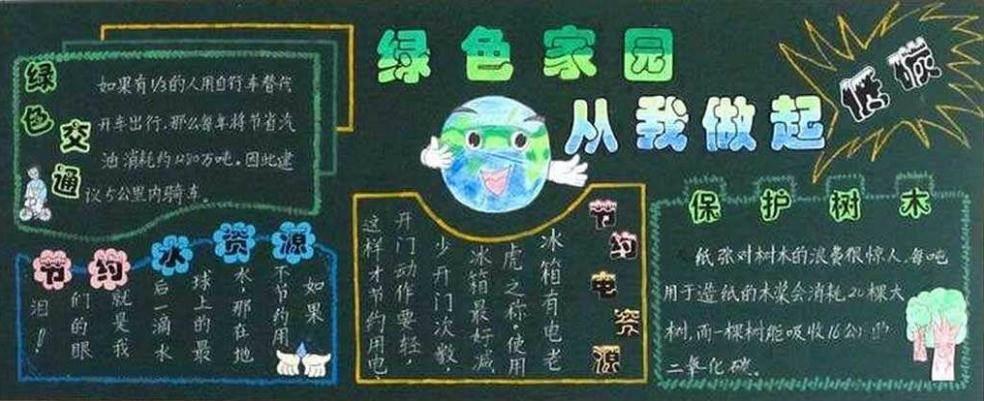 绿色家园
从我做起
低碳
绿色交通
如果有1/3的人用自行车替代
开车出行,那么每年将节省汽
油消耗约1280万吨。因此建
议5公里内骑车。
节约水资源
如果
不节约用
水,那在地
球上的最
后一滴水
就是我
们的眼
泪!
节约电资源
冰箱有电老
虎之称。使用
冰箱最好减
少开门次数,
开门动作要轻,
这样才节约用电。
保护树木
纸张对树木的浪费很惊人,每吨
用于造纸的木浆会消耗20棵大
树,而一棵树能吸收16公
二氧化碳。